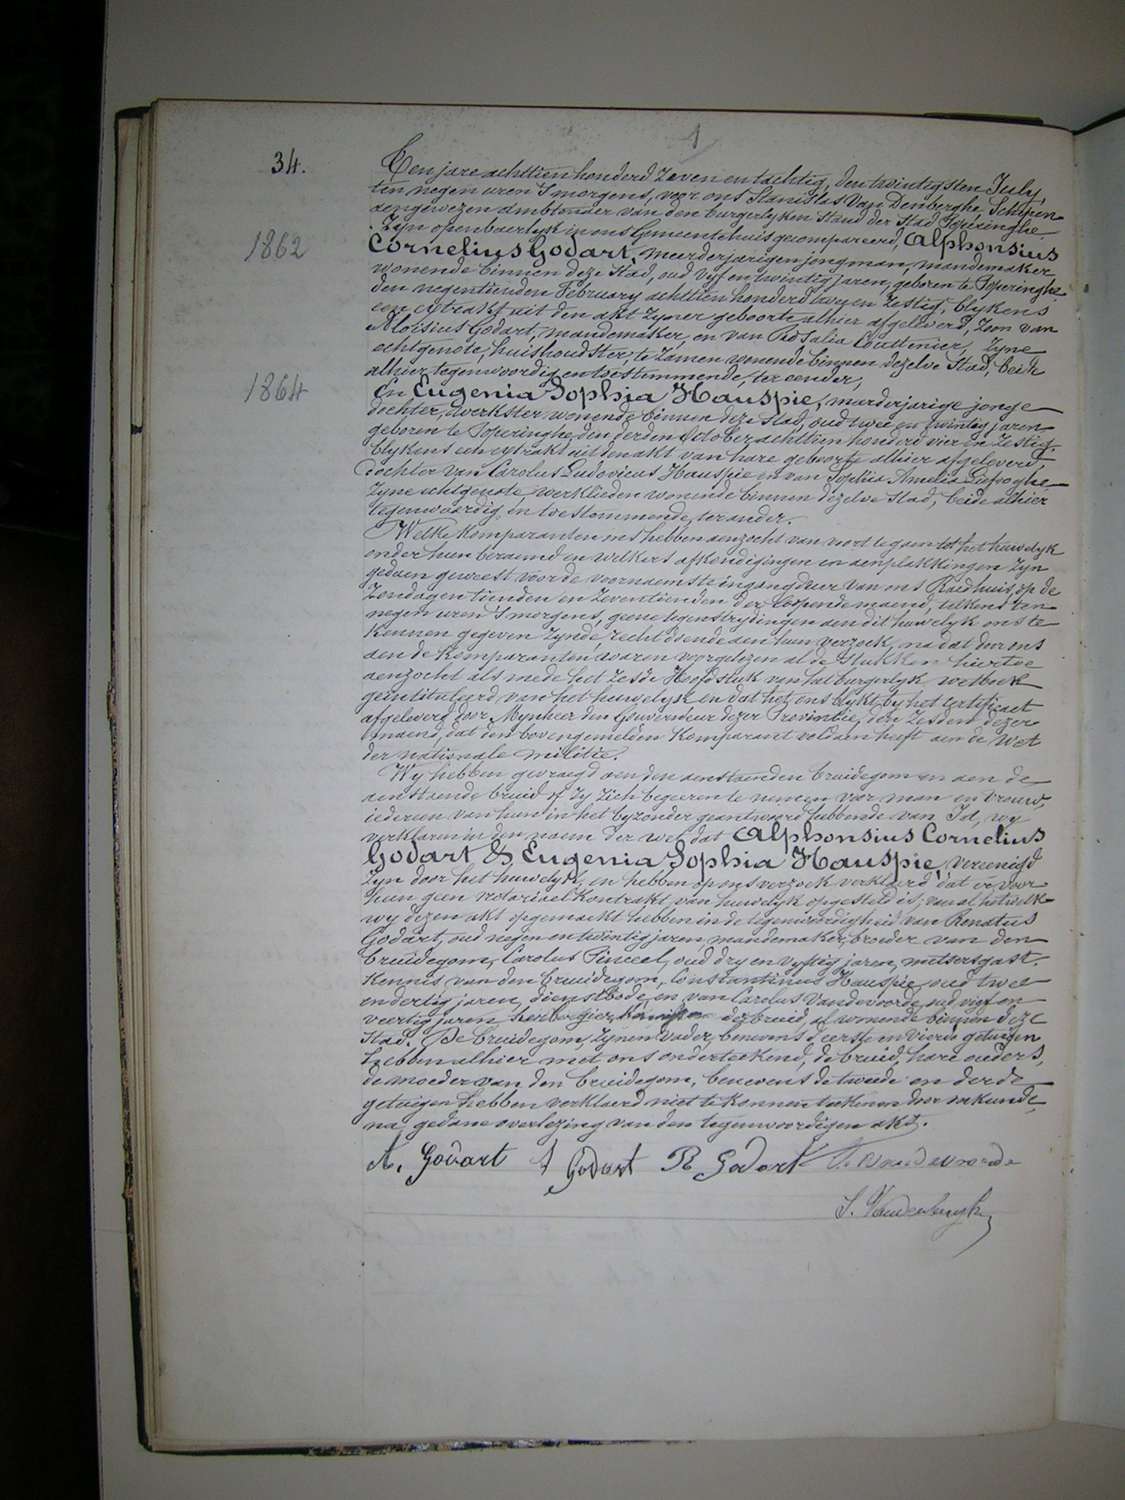 1
34.
Ten jare achttien honderd zeven en tachtig, den twintigsten July,
ten negen uren 's morgens, voor ons Stanislas Van Denberghe, Schepen
aengewezen ambtenaer van den burgerlyken stand der Stad Poperinghe
Zyn openbaerlyk in ons Gemeentehuis gecompareerd, Alphonsius
1862
Cornelius Godart, meerderjarigen jongman, mandemaker
wonende binnen deze Stad, oud vyf en twintig jaren, geboren te Poperinghe
den negentienden February achttien honderd twee en zestig, blykens
een extrakt uit den akt zyner geboorte alhier afgeleverd, zoon van
Aloisius Godart, mandemaker, en van Rosalia Couttenier, zyne
echtgenote, huishoudster, te zamen wonende binnen dezelve Stad, beide
alhier tegenwoordig en toestemmende, ter eender,
1864
En Eugenia Sophia Hauspie, meerderjarige jonge
dochter, werkster wonende binnen deze Stad, oud twee en twintig jaren
geboren te Poperinghe, den derden October achttien honderd vier en zestig,
blykens een extrakt uit den akt van hare geboorte alhier afgeleverd,
dochter van Carolus Ludovicus Hauspie en van Sophia Amelia
zyne echtgenote, werklieden wonende binnen dezelve Stad, beide alhier
tegenwoordig en toestemmende, ter ander.
Welke Komparanten ons hebben aenzocht van voort te gaen tot het huwelyk
onder hun beraemd en welkers afkondigingen en aenplakkingen zyn
gedaen geweest voor de voornaemste ingangdeur van ons Raedhuis op de
Zondagen tienden en zeventienden der loopende maend, telkens ten
negen uren 's morgens, geene tegenstrydingen aen dit huwelyk ons te
kennen gegeven zynde, recht doende aen hun verzoek, na dat door ons
aen de Komparanten waren voorgelezen al de Stukken hiertoe
aenzocht als mede het zesde Hoofdstuk van het burgerlyk wetboek
geintituleerd van het huwelyk en dat het ons blykt by het certificaet
afgeleverd door Mynheer den Gouverneur dezer Provintie, den zesden dezer
maend, dat den bovengemelden Komparant voldaen heeft aen de wet
der nationale militie.
Wy hebben gevraegd aen den aenstaenden bruidegom en aen de
aenstaende bruid of zy zich begeeren te nemen voor man en vrouw,
iedereen van hun in het byzonder geantwoord hebbende van Ja, wy
verklaren in den naem der wet dat Alphonsius Cornelius
Godart & Eugenia Sophia Hauspie, vereenigd
zyn door het huwelyk, en hebben op ons verzoek verklaerd dat er voor
hun geen notariael kontrakt van huwelyk opgesteld is; van al hetwelk
wy dezen akt opgemaekt hebben in de tegenwoordigheid van Renatus
Godart, oud negen en twintig jaren, mandemaker, broeder van den
bruidegom, Carolus Pinceel, oud dry en vyftig jaren, metsersgast,
kennis van den bruidegom, Constantinus Hauspie, oud twee
en dertig jaren, dienstbode, en van Carolus Vandevoorde, oud vyf en
veertig jaren herbergier, der bruid, al wonende binnen deze
Stad. De bruidegom, zynen vader, benevens d'eerste en vierde getuigen
hebben alhier met ons onderteekend, de bruid, hare ouders,
de moeder van den bruidegom, benevens de tweede en derde
getuigen hebben verklaerd niet te konnen teekenen door onkunde,
na gedane overlezing van den tegenwoordigen akt.
A. Godart A Godart R Godart Vandevoorde
S. Vandenberghe